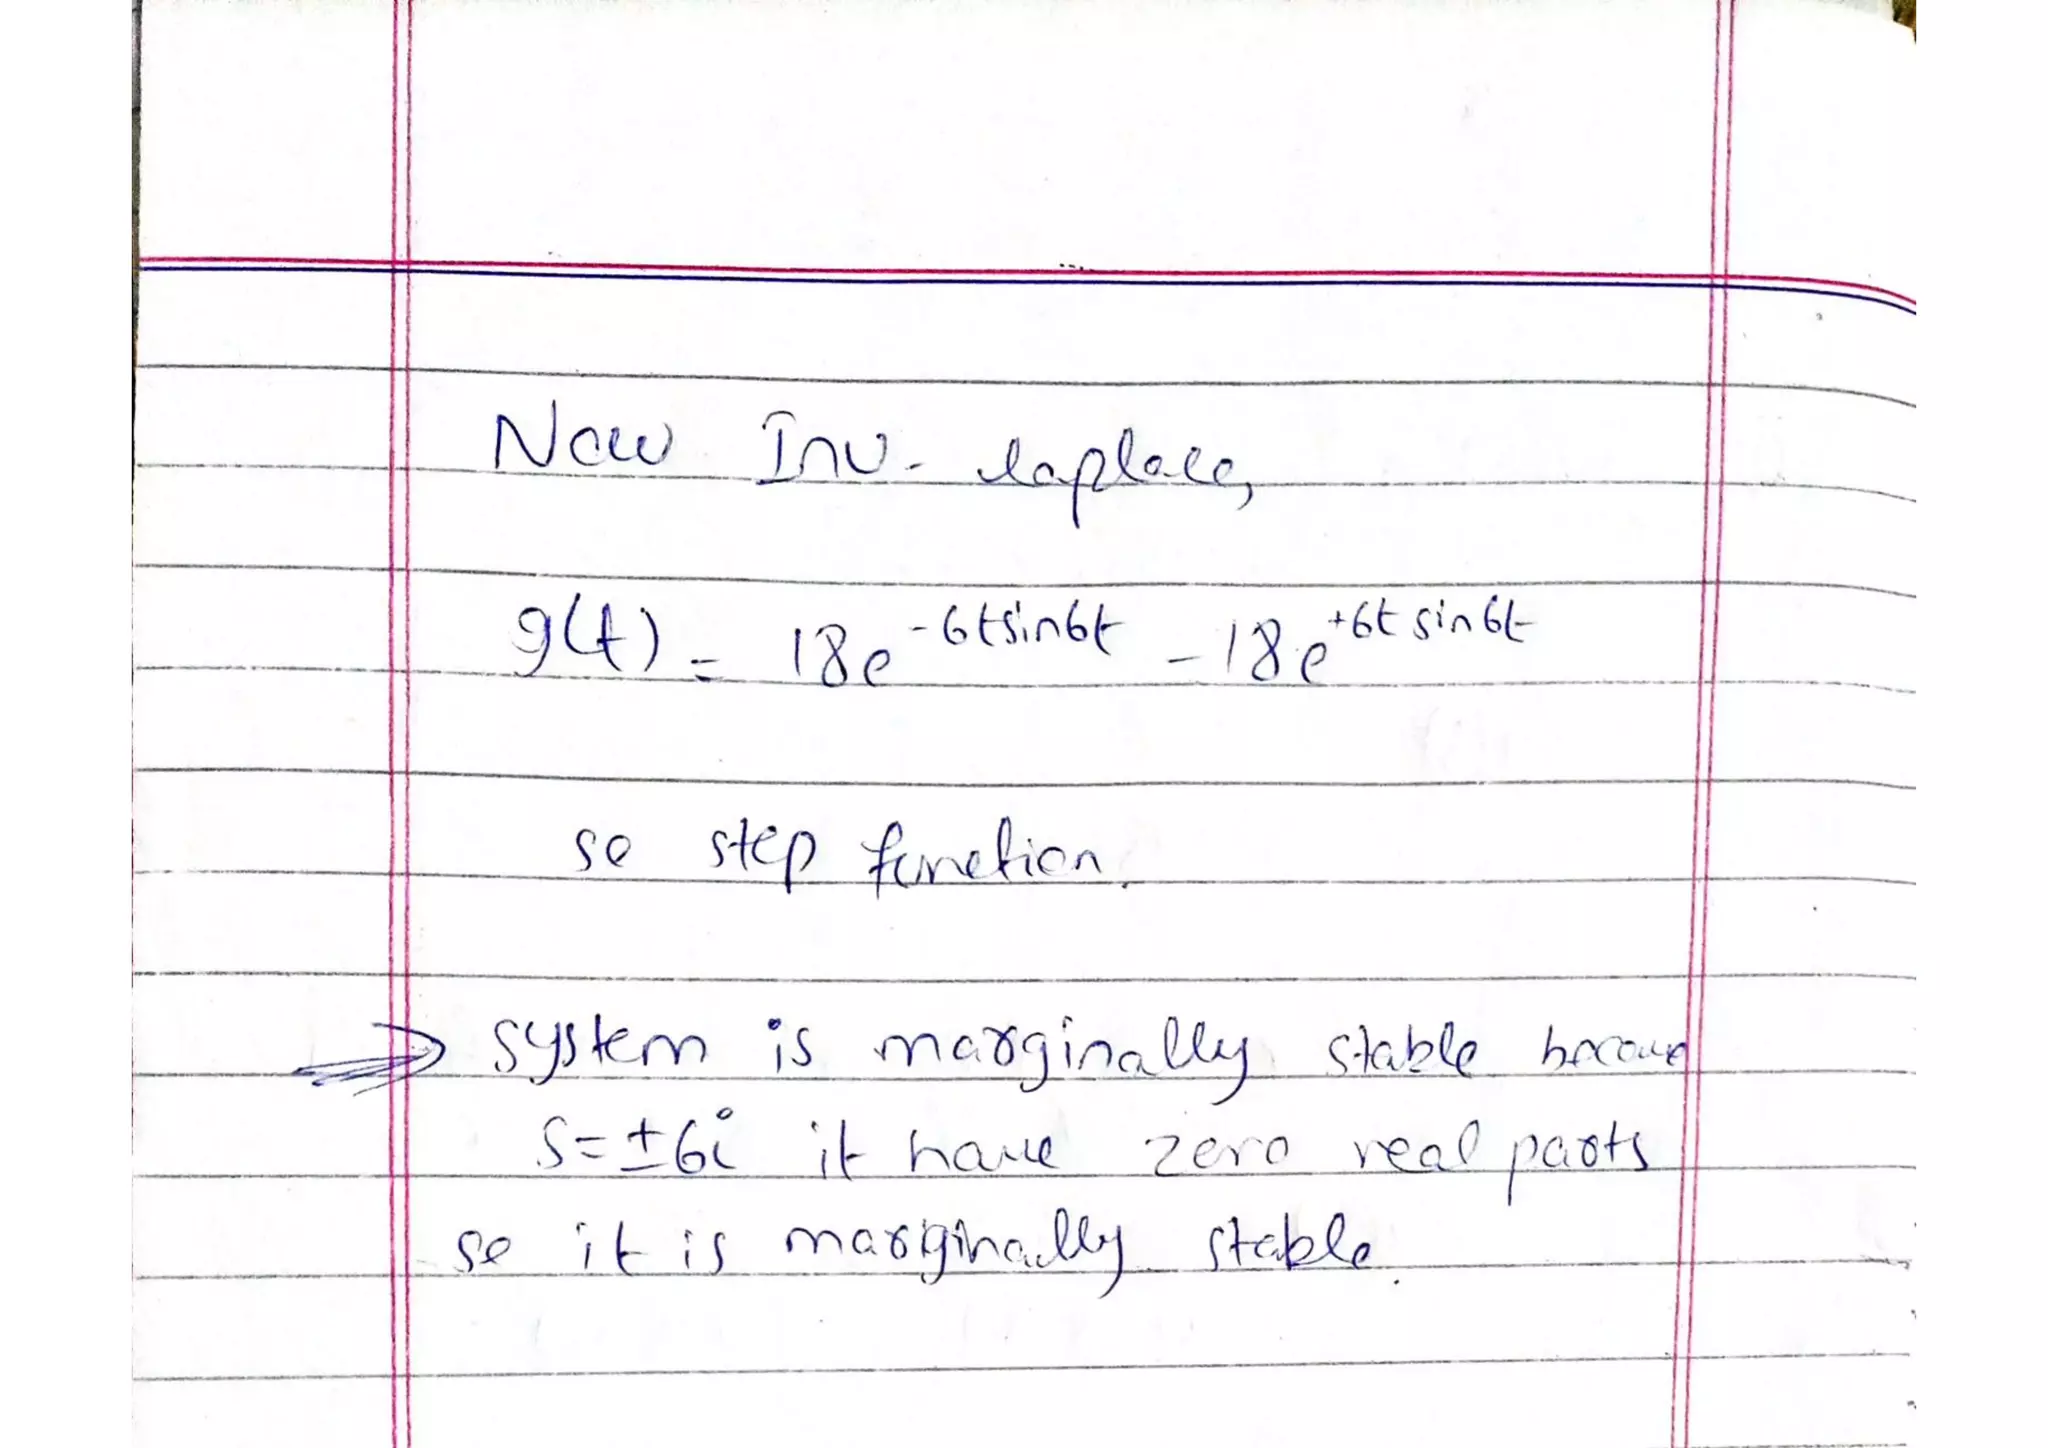 Now Inv. laplace,
g(t) = 18e^-6tsin6t - 18e^+6t sin6t
so step function.
⇒ system is marginally stable because
S=±6i it have zero real parts
so it is marginally stable.